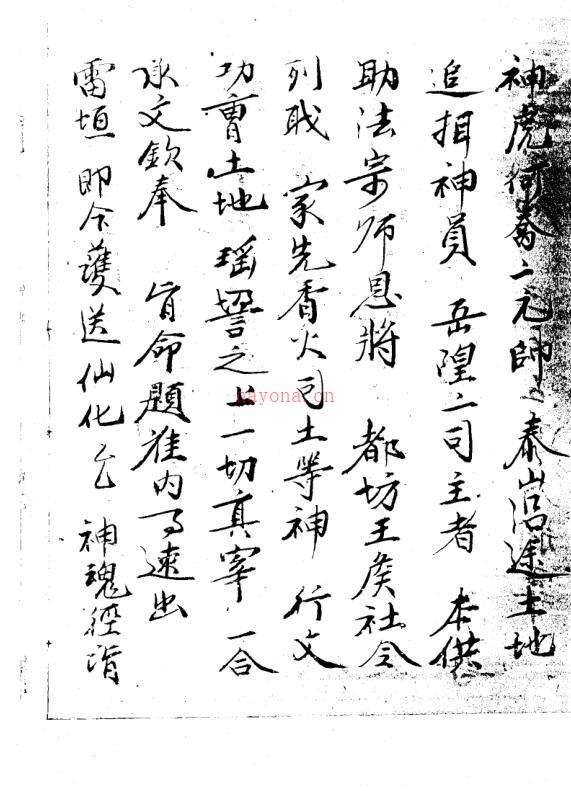 神虎何喬二元帥 泰山沿途土地
追捐神員 岳隍二司主者 本供
助法宗师恩將 都坊王侯社令
列戝 家先香火司土等神 行文
功曹土地 瑶𦈢之上一切真宰 一合
承文欽奉 旨命題准内事速出
雷垣即今護送仙化亡 神魂徑詣
nayona.cn